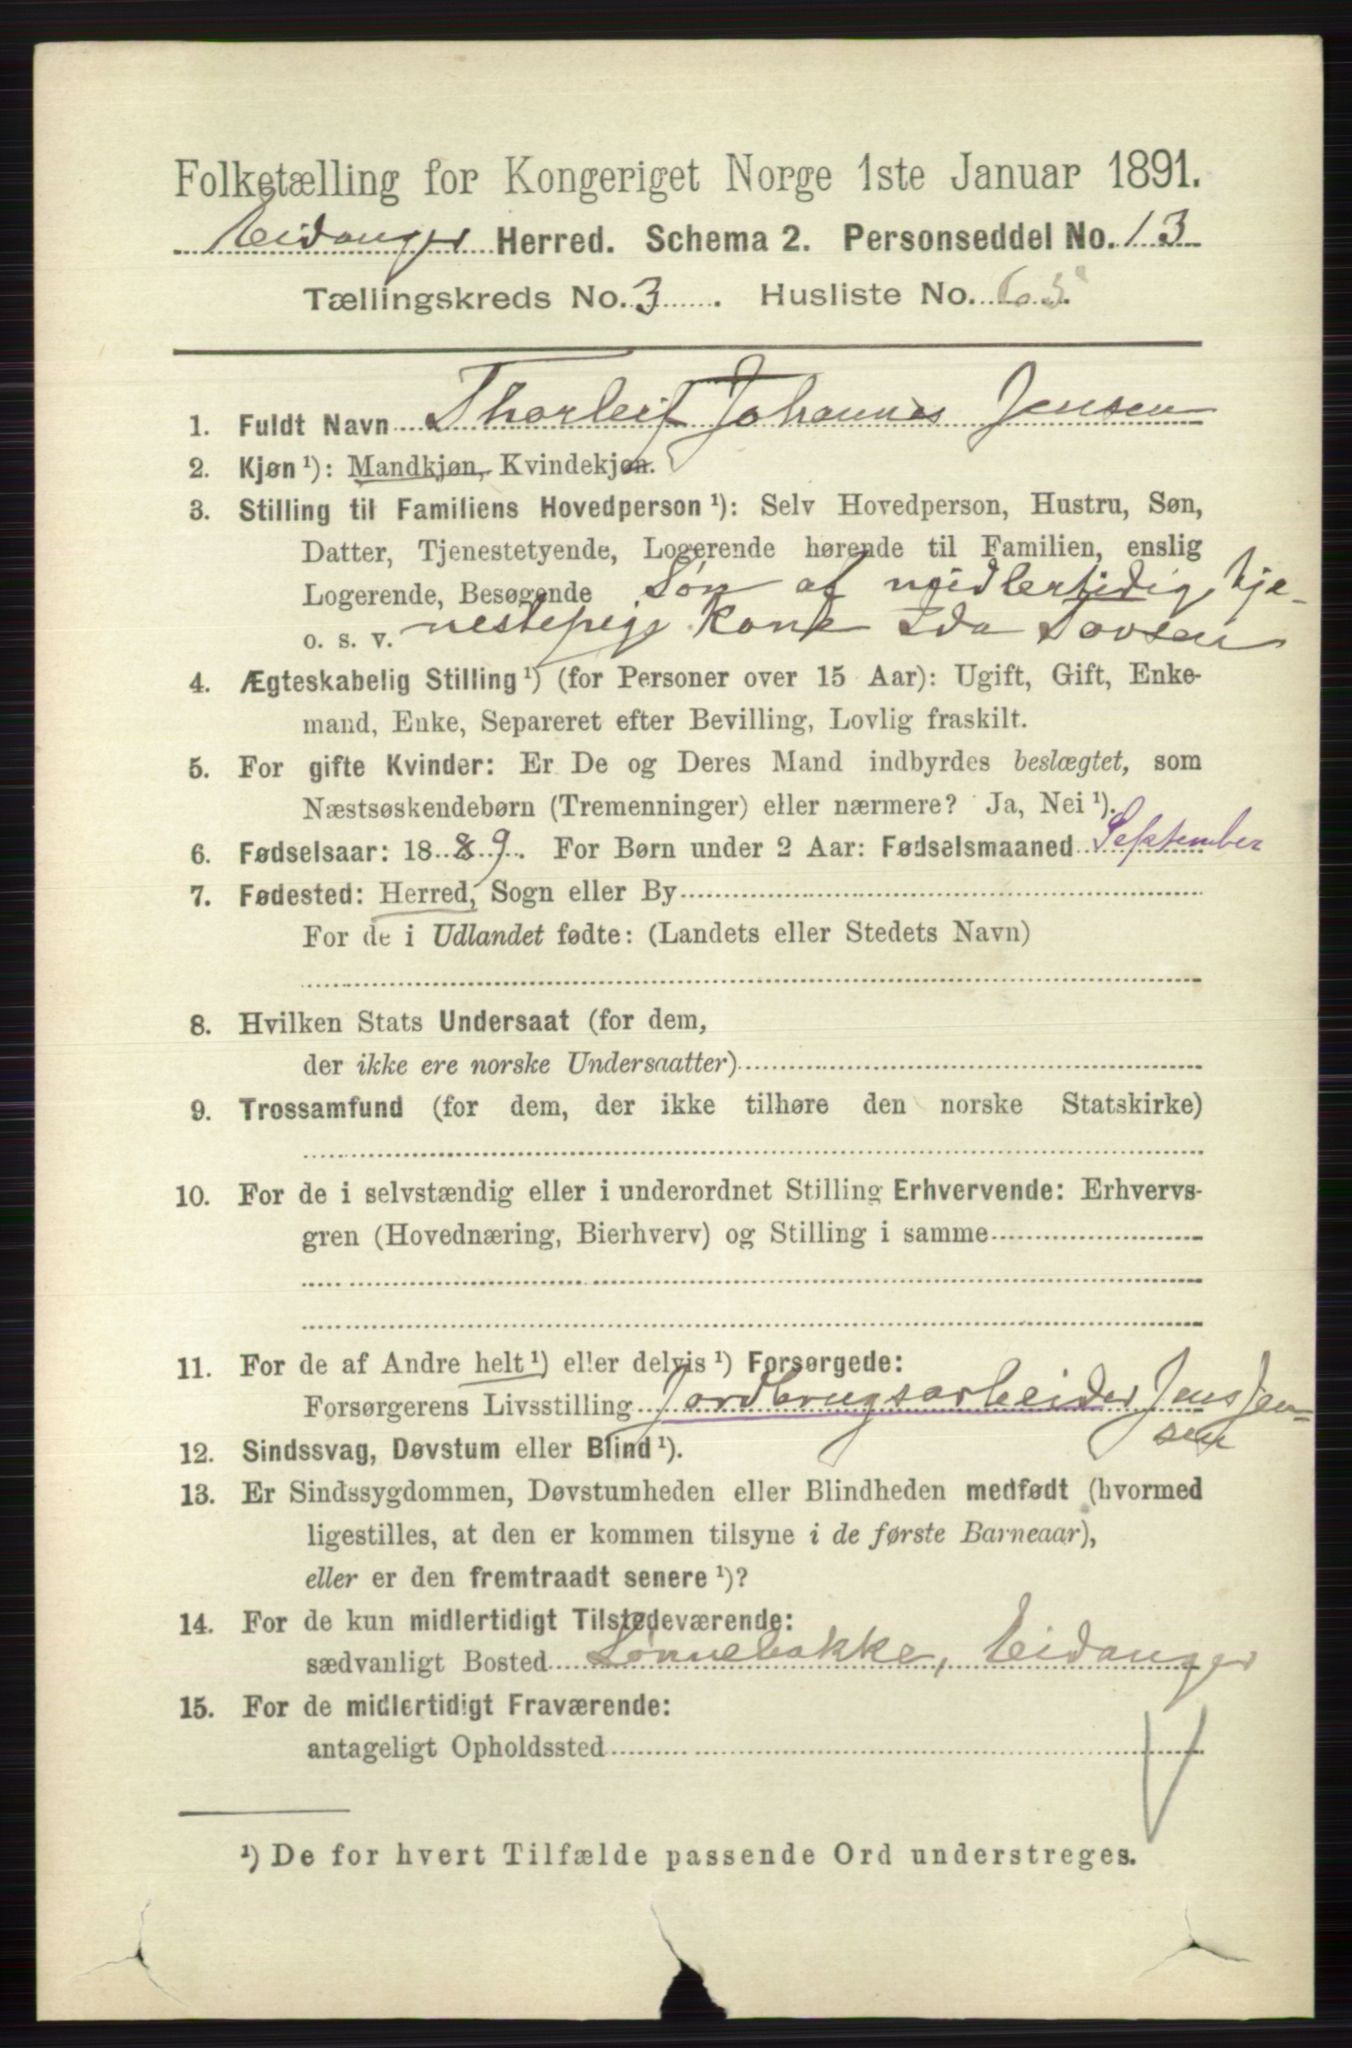 Folketælling for Kongeriget Norge 1ste Januar 1891.
Eidanger Herred. Schema 2. Personseddel No. 13
Tællingskreds No. 3. Husliste No. 63.
1. Fuldt Navn Thorleif Johannes Jensen
2. Kjøn ¹): Mandkjøn, Kvindekjøn.
3. Stilling til Familiens Hovedperson ¹): Selv Hovedperson, Hustru, Søn,
Datter, Tjenestetyende, Logerende hørende til Familien, enslig
Logerende, Besøgende Søn af midlertidig tje-
o. s. v. nestepige Kone Ida
4. Ægteskabelig Stilling ¹) (for Personer over 15 Aar): Ugift, Gift, Enke-
mand, Enke, Separeret efter Bevilling, Lovlig fraskilt.
5. For gifte Kvinder: Er De og Deres Mand indbyrdes beslægtet, som
Næstsøskendebørn (Tremenninger) eller nærmere? Ja, Nei ¹).
6. Fødselsaar: 1889. For Børn under 2 Aar: Fødselsmaaned September
7. Fødested: Herred, Sogn eller By
For de i Udlandet fødte: (Landets eller Stedets Navn)
8. Hvilken Stats Undersaat (for dem,
der ikke ere norske Undersaatter)
9. Trossamfund (for dem, der ikke tilhøre den norske Statskirke)
10. For de i selvstændig eller i underordnet Stilling Erhvervende: Erhvervs-
gren (Hovednæring, Bierhverv) og Stilling i samme
11. For de af Andre helt ¹) eller delvis ¹) Forsørgede:
Forsørgerens Livsstilling Jordbrugsarbeider Jens Jen-
sen
12. Sindssvag, Døvstum eller Blind ¹).
13. Er Sindssygdommen, Døvstumheden eller Blindheden medfødt (hvormed
ligestilles, at den er kommen tilsyne i de første Barneaar),
eller er den fremtraadt senere ¹)?
14. For de kun midlertidigt Tilstedeværende:
sædvanligt Bosted Lønnebakke, Eidanger
15. For de midlertidigt Fraværende:
antageligt Opholdssted
¹) De for hvert Tilfælde passende Ord understreges.